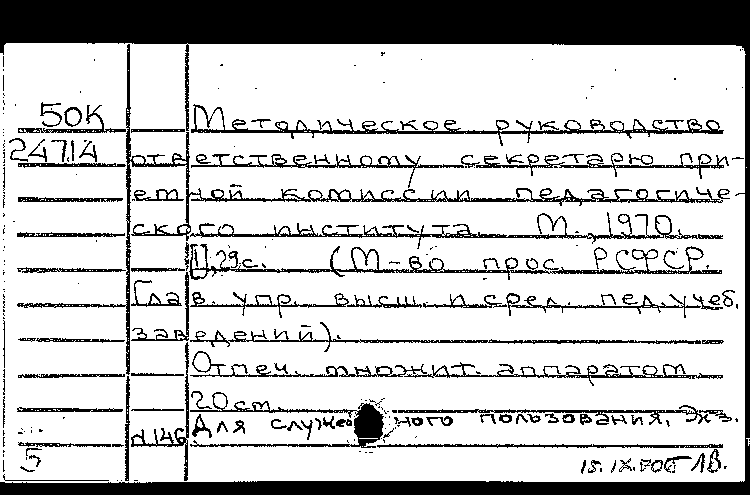 50К Методическое руководство
24714 ответственному секретарю при-
емной комиссии педагогиче-
ского института. М., 1970.
[1], 29с. (М-во прос. РСФСР.
Глав. упр. высш. и сред. пед. учеб.
заведений).
Отпеч. множит. аппаратом.
20 см.
N.146 Для служебного пользования, Экз.
5 ЛВ.